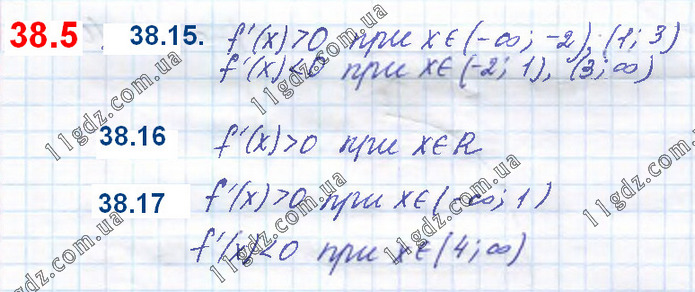 38.5 38.15. f'(x)>0 при x∈(-∞; -2), (1; 3)
f'(x)<0 при x∈(-2; 1), (3; ∞)
38.16 f'(x)>0 при x∈R
38.17 f'(x)>0 при x∈(-∞; 1)
f'(x)<0 при x∈(4; ∞)
11gdz.com.ua
11gdz.com.ua
11gdz.com.ua
11gdz.com.ua
11gdz.com.ua
11gdz.com.ua